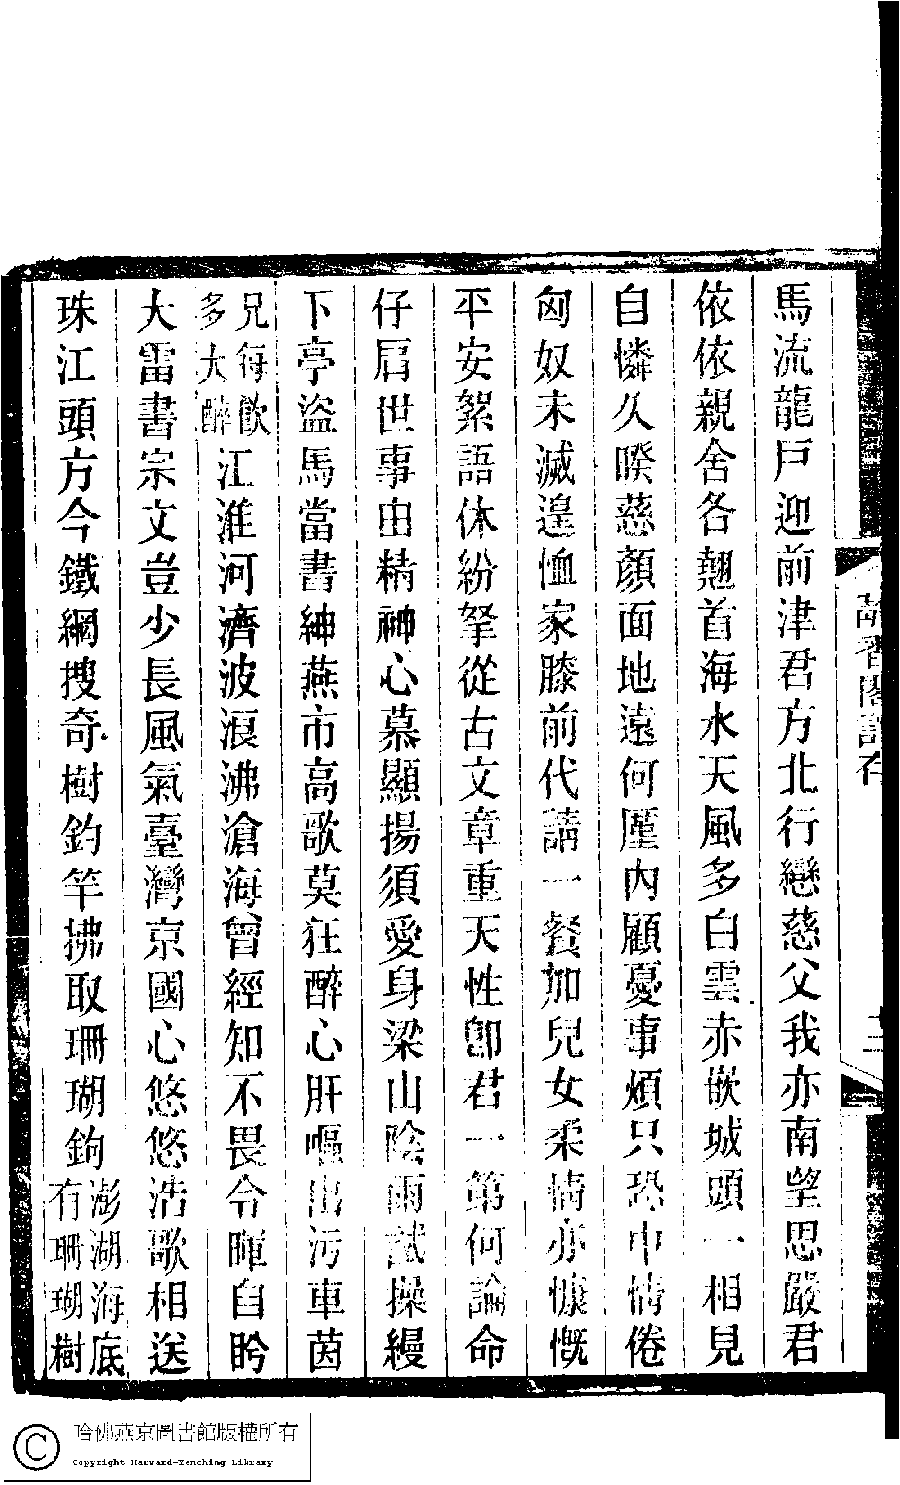 馬流龍戸迎前津君方北行戀慈父我亦南望思嚴君
依依親舍各翹首海水天風多白雲赤嵌城頭一相見
自憐久睽慈顏面地遠何厪內顧憂事煩只恐中情倦
匈奴未滅遑恤家膝前代請一餐加兒女柔情亦慷慨
平安絮語休紛拏從古文章重天性卽君一第何論命
仔肩世事由精神心慕顯揚須愛身梁山陰雨試操縵
下亭盜馬當書紳燕市高歌莫狂醉心肝嘔出污車茵
兄每飮多大醉江淮河濟波浪沸滄海曾經知不畏令暉自矜
大雷書宗文豈少長風氣臺灣京國心悠悠浩歌相送
珠江頭方今鐵網搜奇樹釣竿拂取珊瑚鉤澎湖海底有珊瑚樹
哈佛燕京圖書館版權所有
Copyright Harvard-Yenching Library